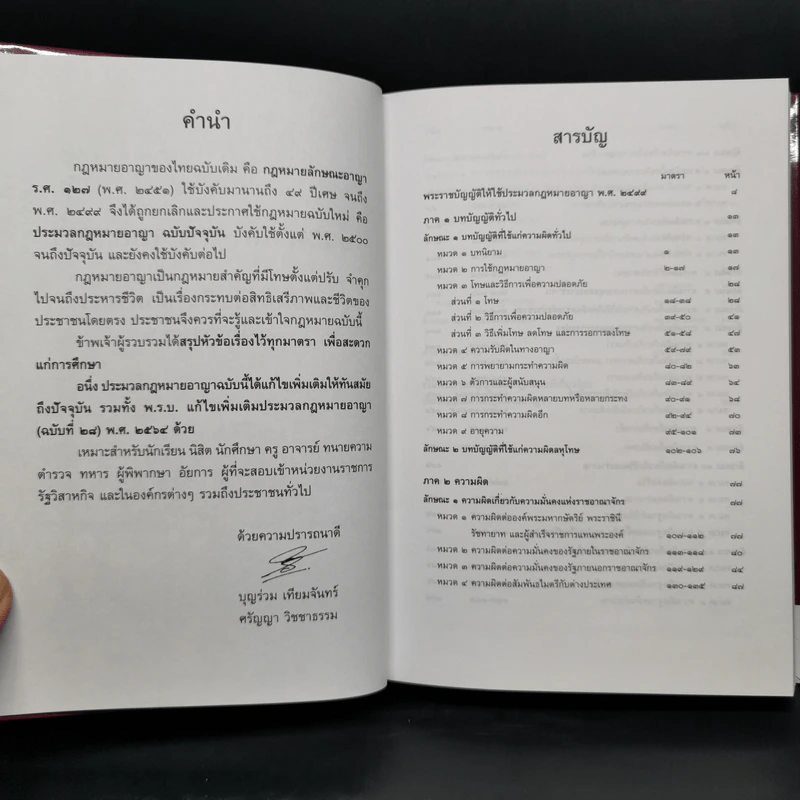 คำนำ
กฎหมายอาญาของไทยฉบับเดิม คือ กฎหมายลักษณะอาญา
ร.ศ. ๑๒๗ (พ.ศ. ๒๔๕๑) ใช้บังคับมานานถึง ๔๙ ปีเศษ จนถึง
พ.ศ. ๒๔๙๙ จึงได้ถูกยกเลิกและประกาศใช้กฎหมายฉบับใหม่ คือ
ประมวลกฎหมายอาญา ฉบับปัจจุบัน บังคับใช้ตั้งแต่ พ.ศ. ๒๕๐๐
จนถึงปัจจุบัน และยังคงใช้บังคับต่อไป
กฎหมายอาญาเป็นกฎหมายสำคัญที่มีโทษตั้งแต่ปรับ จำคุก
ไปจนถึงประหารชีวิต เป็นเรื่องกระทบต่อสิทธิเสรีภาพและชีวิตของ
ประชาชนโดยตรง ประชาชนจึงควรที่จะรู้และเข้าใจกฎหมายฉบับนี้
ข้าพเจ้าผู้รวบรวมได้สรุปหัวข้อเรื่องไว้ทุกมาตรา เพื่อสะดวก
แก่การศึกษา
อนึ่ง ประมวลกฎหมายอาญาฉบับนี้ได้แก้ไขเพิ่มเติมให้ทันสมัย
ถึงปัจจุบัน รวมทั้ง พ.ร.บ. แก้ไขเพิ่มเติมประมวลกฎหมายอาญา
(ฉบับที่ ๒๘) พ.ศ. ๒๕๖๔ ด้วย
เหมาะสำหรับนักเรียน นิสิต นักศึกษา ครู อาจารย์ ทนายความ
ตำรวจ ทหาร ผู้พิพากษา อัยการ ผู้ที่จะสอบเข้าหน่วยงานราชการ
รัฐวิสาหกิจ และในองค์กรต่างๆ รวมถึงประชาชนทั่วไป
ด้วยความปรารถนาดี
บุญร่วม เทียมจันทร์
ศรัญญา วิชชาธรรม
สารบัญ
มาตรา หน้า
พระราชบัญญัติให้ใช้ประมวลกฎหมายอาญา พ.ศ. ๒๔๙๙ ๘
ภาค ๑ บทบัญญัติทั่วไป ๑๓
ลักษณะ ๑ บทบัญญัติที่ใช้แก่ความผิดทั่วไป ๑๓
หมวด ๑ บทนิยาม ๑ ๑๓
หมวด ๒ การใช้กฎหมายอาญา ๒-๑๗ ๑๗
หมวด ๓ โทษและวิธีการเพื่อความปลอดภัย ๒๘
ส่วนที่ ๑ โทษ ๑๘-๓๘ ๒๘
ส่วนที่ ๒ วิธีการเพื่อความปลอดภัย ๓๙-๕๐ ๔๑
ส่วนที่ ๓ วิธีเพิ่มโทษ ลดโทษ และการรอการลงโทษ ๕๑-๕๘ ๔๗
หมวด ๔ ความรับผิดในทางอาญา ๕๙-๗๙ ๕๓
หมวด ๕ การพยายามกระทำความผิด ๘๐-๘๒ ๖๓
หมวด ๖ ตัวการและผู้สนับสนุน ๘๓-๘๙ ๖๔
หมวด ๗ การกระทำความผิดหลายบทหรือหลายกระทง ๙๐-๙๑ ๖๘
หมวด ๘ การกระทำความผิดอีก ๙๒-๙๔ ๗๐
หมวด ๙ อายุความ ๙๕-๑๐๑ ๗๓
ลักษณะ ๒ บทบัญญัติที่ใช้แก่ความผิดลหุโทษ ๑๐๒-๑๐๖ ๗๖
ภาค ๒ ความผิด ๗๗
ลักษณะ ๑ ความผิดเกี่ยวกับความมั่นคงแห่งราชอาณาจักร ๗๗
หมวด ๑ ความผิดต่อองค์พระมหากษัตริย์ พระราชินี
รัชทายาท และผู้สำเร็จราชการแทนพระองค์ ๑๐๗-๑๑๒ ๗๗
หมวด ๒ ความผิดต่อความมั่นคงของรัฐภายในราชอาณาจักร ๑๑๓-๑๑๘ ๘๐
หมวด ๓ ความผิดต่อความมั่นคงของรัฐภายนอกราชอาณาจักร ๑๑๙-๑๒๙ ๘๔
หมวด ๔ ความผิดต่อสัมพันธไมตรีกับต่างประเทศ ๑๓๐-๑๓๕ ๘๗